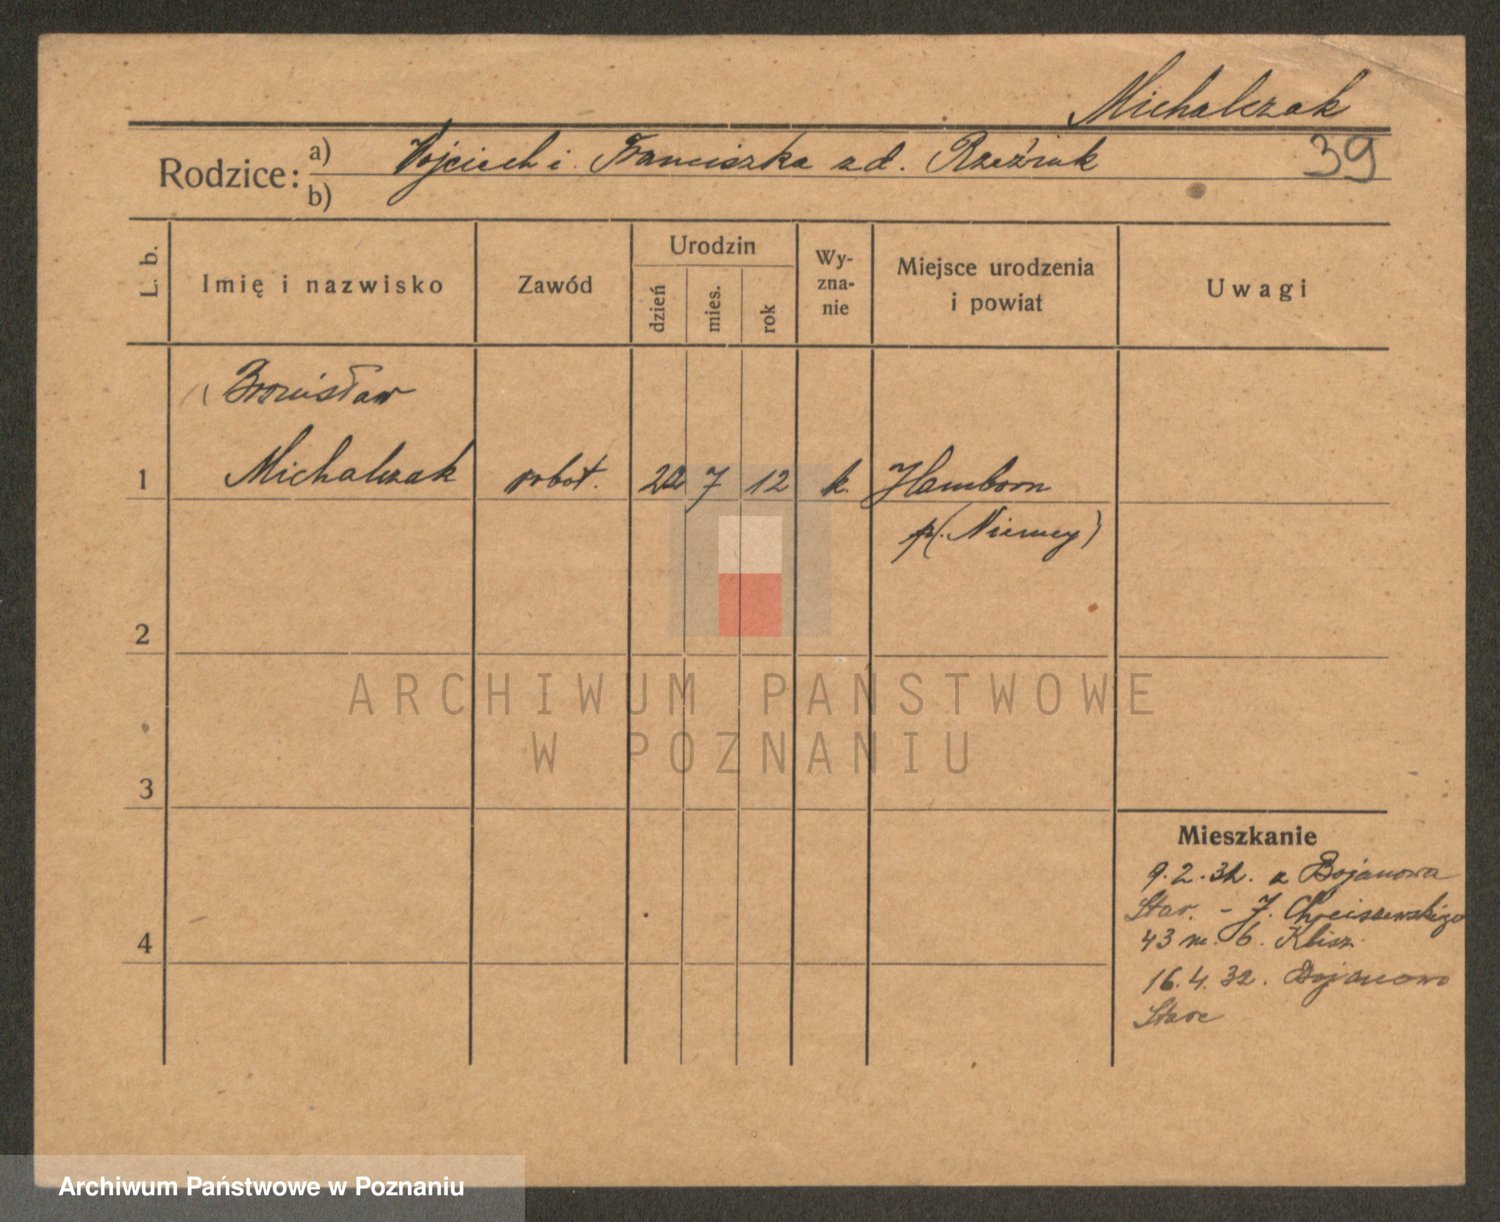 Michalczak
39
Rodzice: a) Wojciech i Franciszka zd. Rzeźnik
b)
L. b.
Imię i nazwisko
Zawód
Urodzin
dzień
mies.
rok
Wy-
zna-
nie
Miejsce urodzenia
i powiat
Uwagi
Bronisław
1 Michalczak robot. 7 12 k. Hamborn
(Niemcy)
2
3
4
Mieszkanie
9.2.32. z Bojanowa
Star. - J.
43 m. 6. Klisz.
16.4.32. Bojanowo
Stare
ARCHIWUM PAŃSTWOWE
W POZNANIU
Archiwum Państwowe w Poznaniu